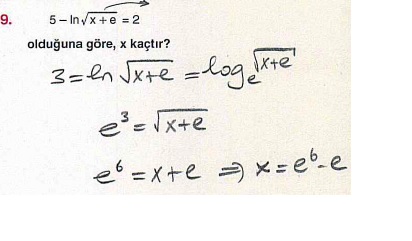 9. 5 – ln√(x + e) = 2
olduğuna göre, x kaçtır?
3 = ln √(x+e) = logₑ √(x+e)
e³ = √(x+e)
e⁶ = x+e ⇒ x = e⁶ - e